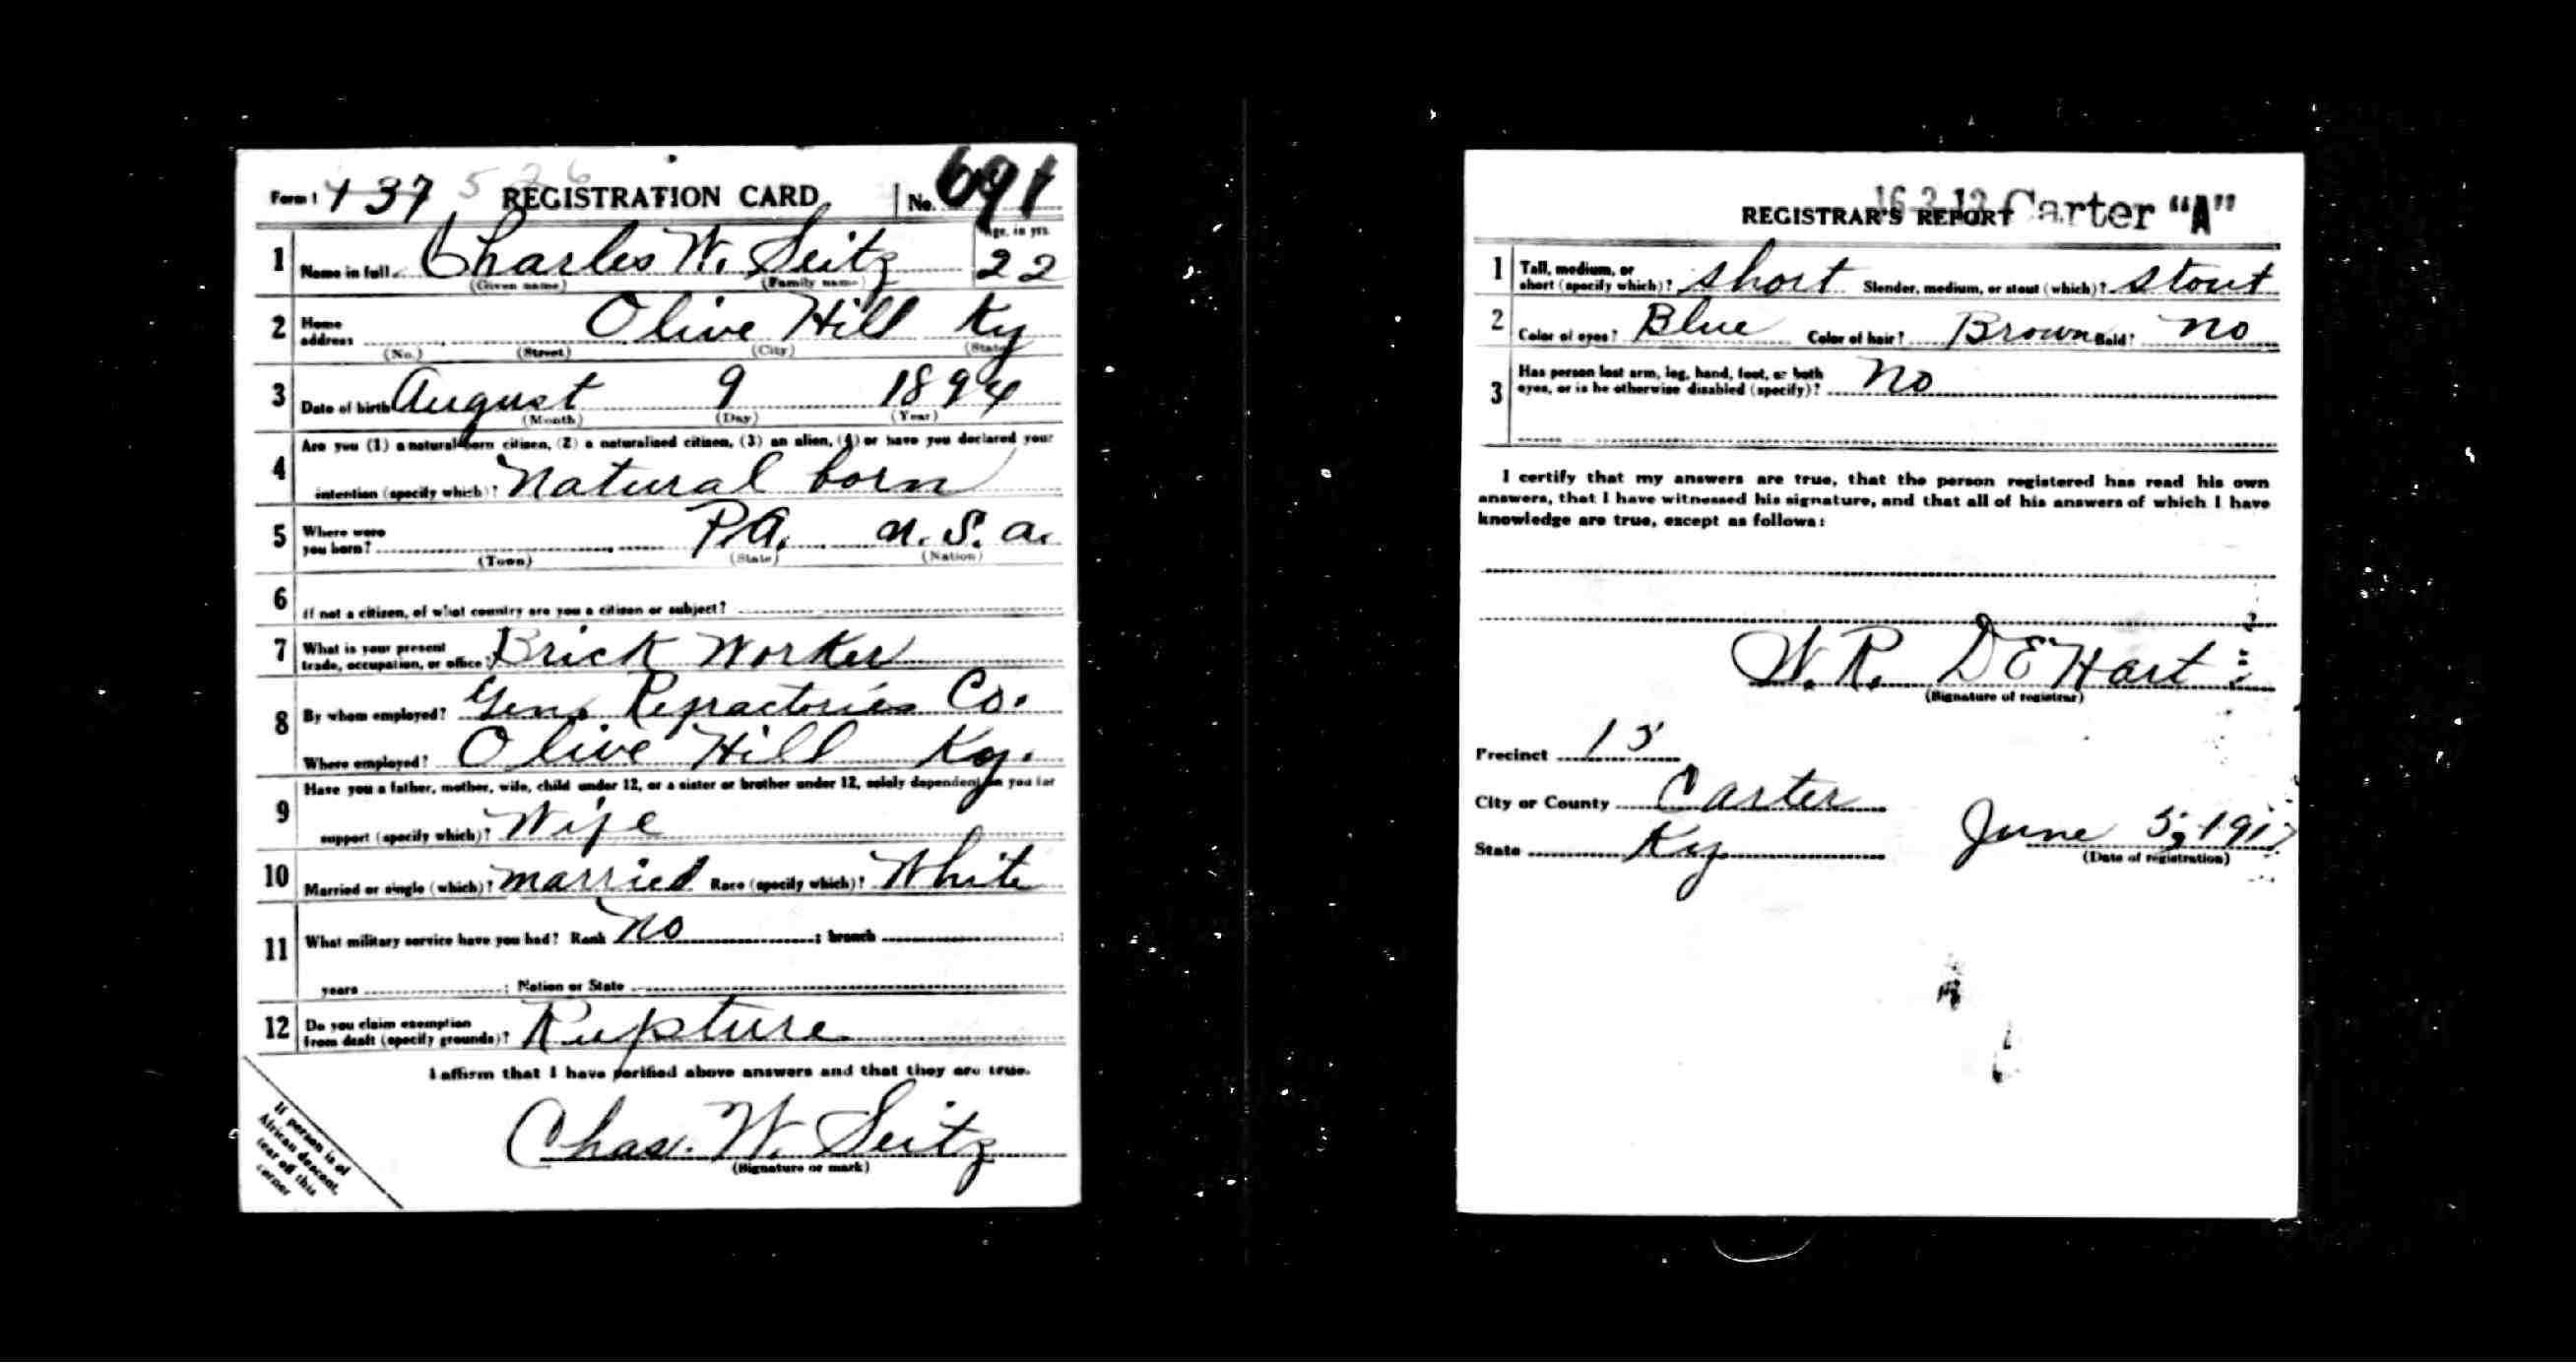 Form 1 437 526 REGISTRATION CARD No. 691
Age, in yrs.
1 Name in full Charles W. Seitz 22
(Given name) (Family name)
2 Home address Olive Hill Ky
(No.) (Street) (City) (State)
3 Date of birth August 9 1894
(Month) (Day) (Year)
Are you (1) a natural-born citizen, (2) a naturalized citizen, (3) an alien, (4) or have you declared your
4 intention (specify which)? Natural born
5 Where were you born? PA. U.S.a.
(Town) (State) (Nation)
6 If not a citizen, of what country are you a citizen or subject?
7 What is your present trade, occupation, or office? Brick Worker
8 By whom employed? Gen. Refractories Co.
Where employed? Olive Hill Ky.
Have you a father, mother, wife, child under 12, or a sister or brother under 12, solely dependent on you for
9 support (specify which)? Wife
10 Married or single (which)? married Race (specify which)? White
11 What military service have you had? Rank No ; branch ;
years ; Nation or State
12 Do you claim exemption from draft (specify grounds)? Rupture
I affirm that I have verified above answers and that they are true.
Chas. W. Seitz
(Signature or mark)
If person is of
African descent,
tear off this
corner
16-3-12 Carter "A"
REGISTRAR'S REPORT
1 Tall, medium, or short (specify which)? Short Slender, medium, or stout (which)? Stout
2 Color of eyes? Blue Color of hair? Brown Bald? No
3 Has person lost arm, leg, hand, foot, or both eyes, or is he otherwise disabled (specify)? No
I certify that my answers are true, that the person registered has read his own
answers, that I have witnessed his signature, and that all of his answers of which I have
knowledge are true, except as follows:
W. R. DEHart
(Signature of registrar)
Precinct 15
City or County Carter
State Ky June 5, 1917
(Date of registration)